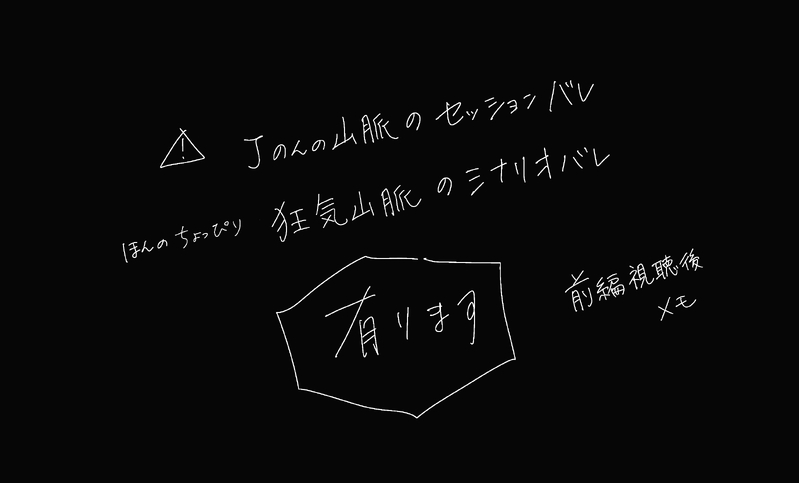 ⚠ Jのんの山脈のセッションバレ
ほんのちょっぴり 狂気山脈のシナリオバレ
有ります
前編視聴後
メモ